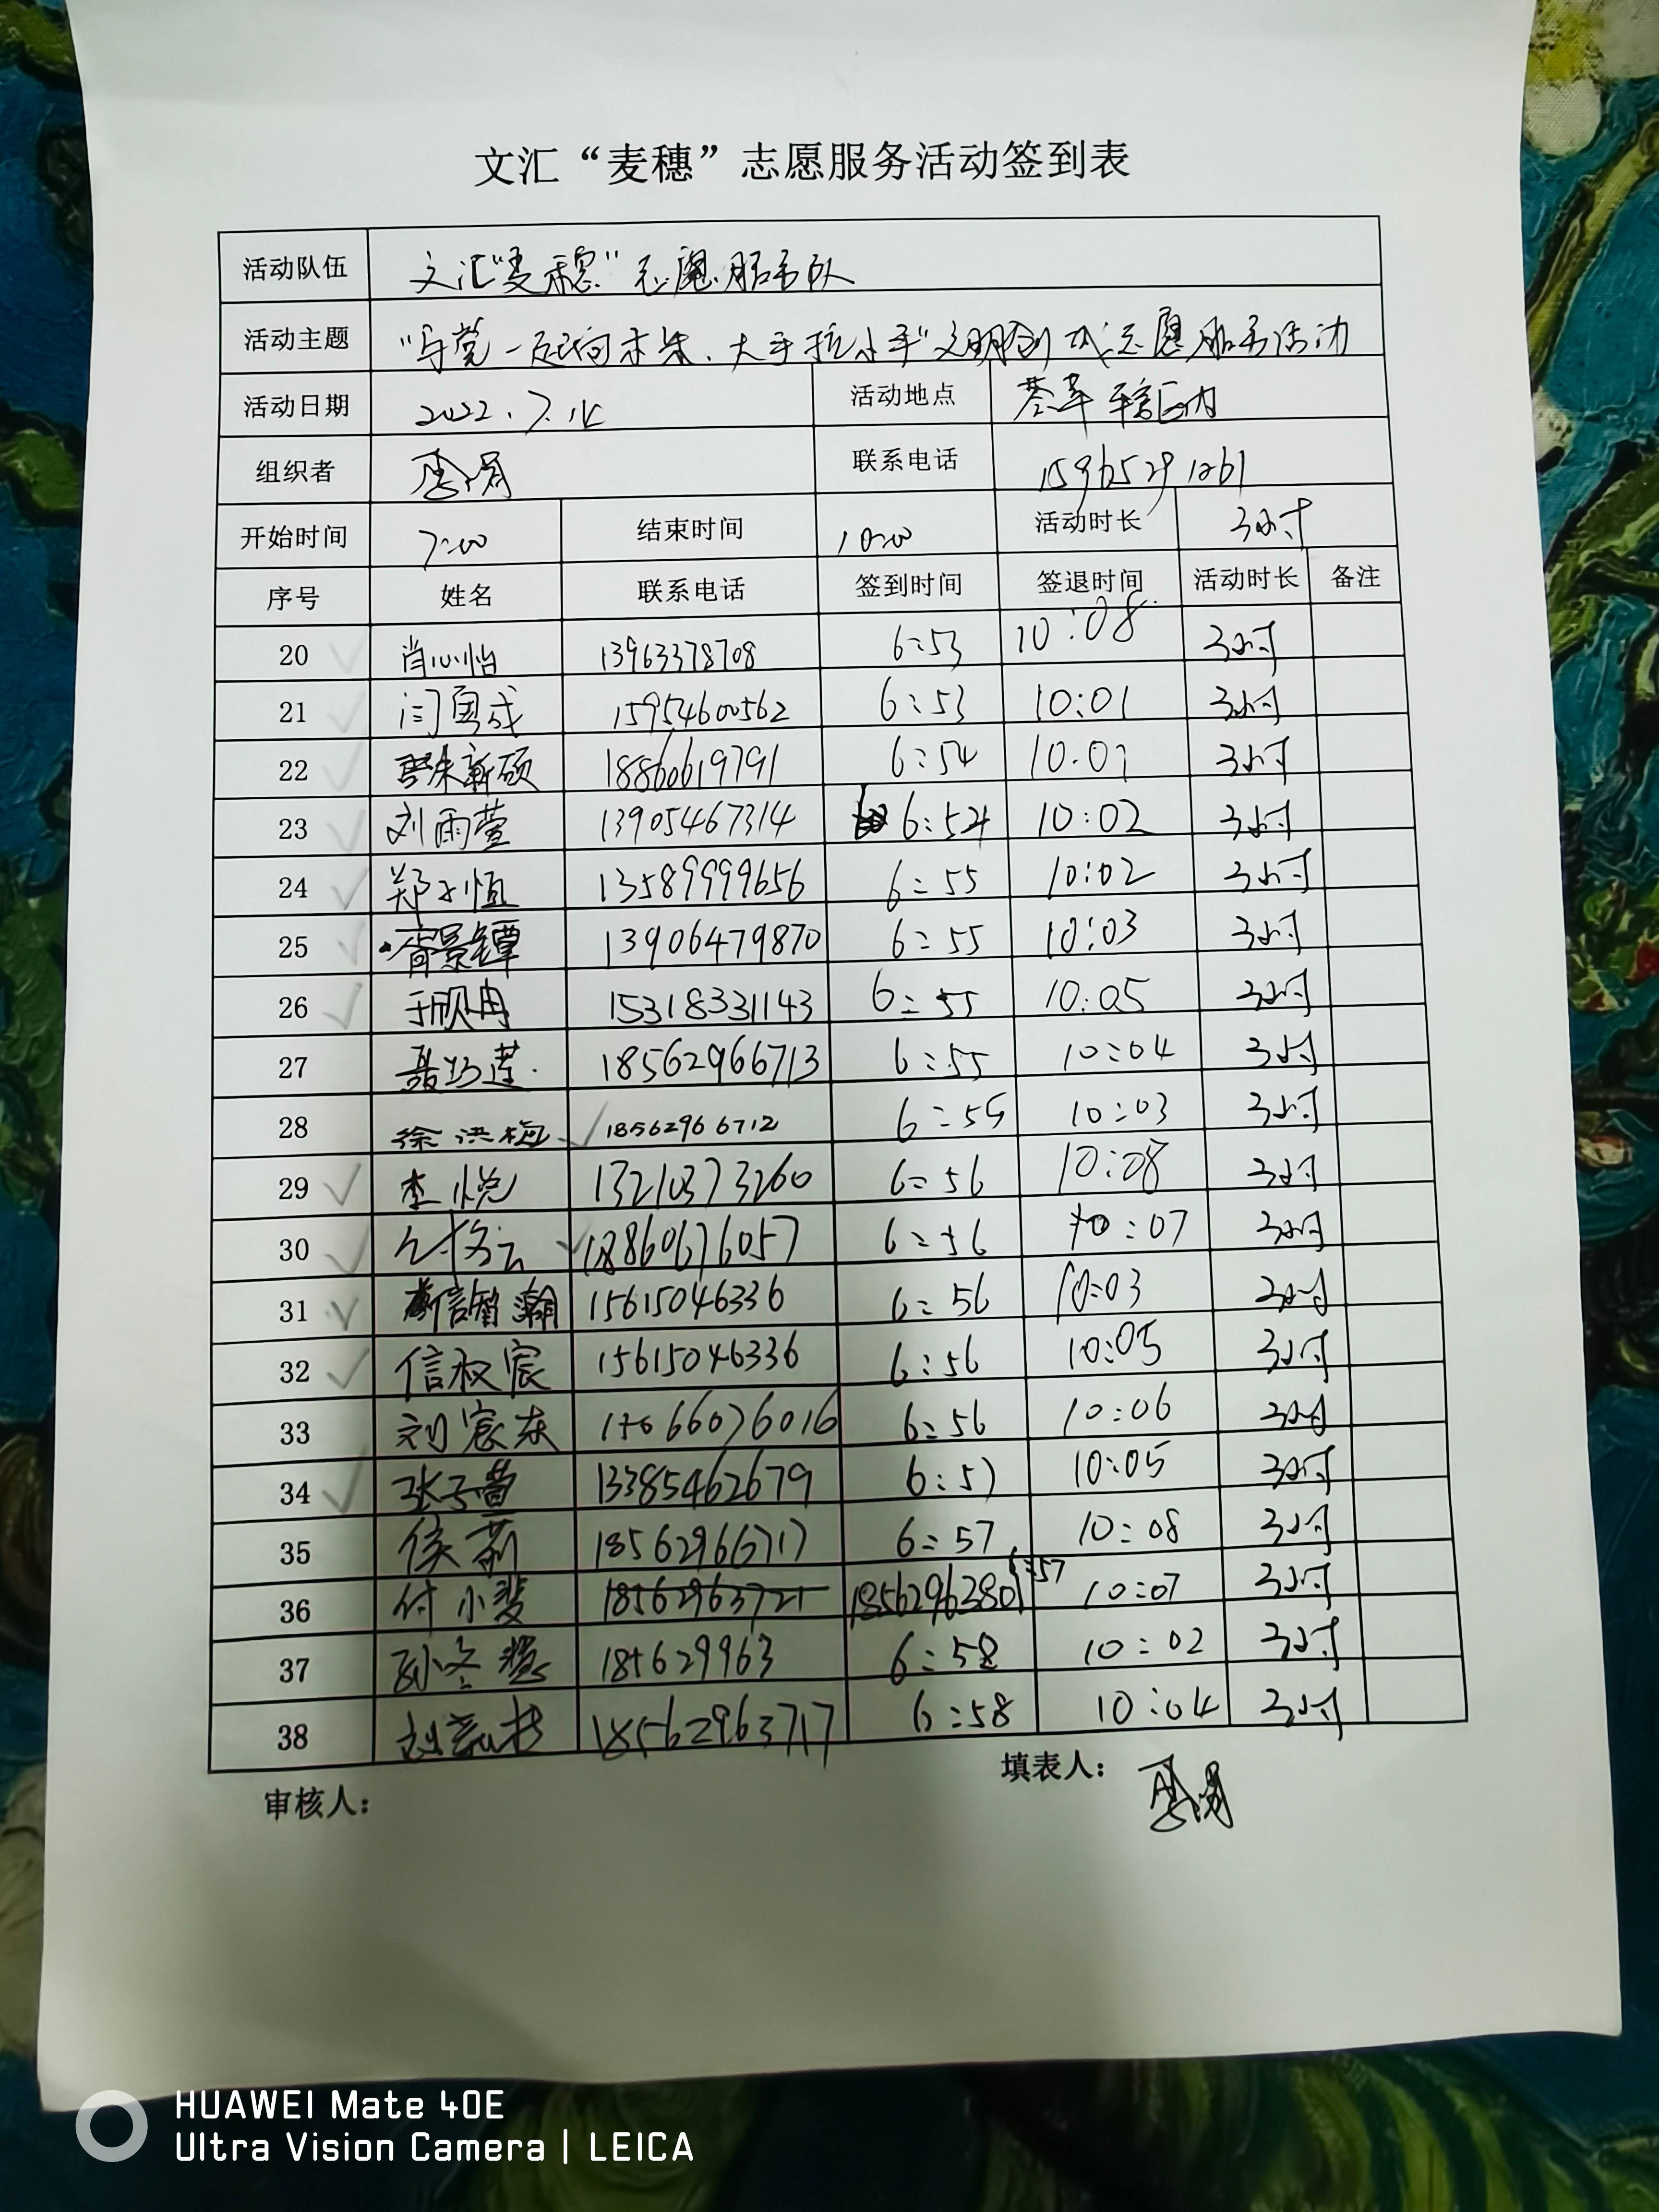 文汇“麦穗”志愿服务活动签到表
活动队伍 文汇“麦穗”志愿服务队
活动主题 “与党一起向未来、大手拉小手”文明创城志愿服务活动
活动日期 2022.7.14 活动地点 荟萃辖区内
组织者 联系电话 15965291261
开始时间 7:00 结束时间 10:00 活动时长 3小时
序号 姓名 联系电话 签到时间 签退时间 活动时长 备注
20 肖心怡 13963378708 6:53 10:08 3小时
21 15954600562 6:53 10:01 3小时
22 新硕 18860619791 6:54 10.01 3小时
23 刘雨萱 13905467314 6:54 10:02 3小时
24 郑子恒 13589999656 6:55 10:02 3小时
25 景镡 13906479870 6:55 10:03 3小时
26 于欣冉 15318331143 6:55 10:05 3小时
27 聂 莲 18562966713 6:55 10:04 3小时
28 徐洪梅 18562966712 6:55 10:03 3小时
29 李悦 13210373260 6:56 10:08 3小时
30 18860676057 6:56 10:07 3小时
31 信智瀚 15615046336 6:56 10:03 3小时
32 信权宸 15615046336 6:56 10:05 3小时
33 刘宸东 15066076016 6:56 10:06 3小时
34 张子萱 13385462679 6:57 10:05 3小时
35 侯莉 18562966717 6:57 10:08 3小时
36 付小斐 18562963721 18562963801 6:57 10:07 3小时
37 孙冬 185629963 6:58 10:02 3小时
38 刘 18562963717 6:58 10:04 3小时
审核人： 填表人：
HUAWEI Mate 40E
Ultra Vision Camera | LEICA